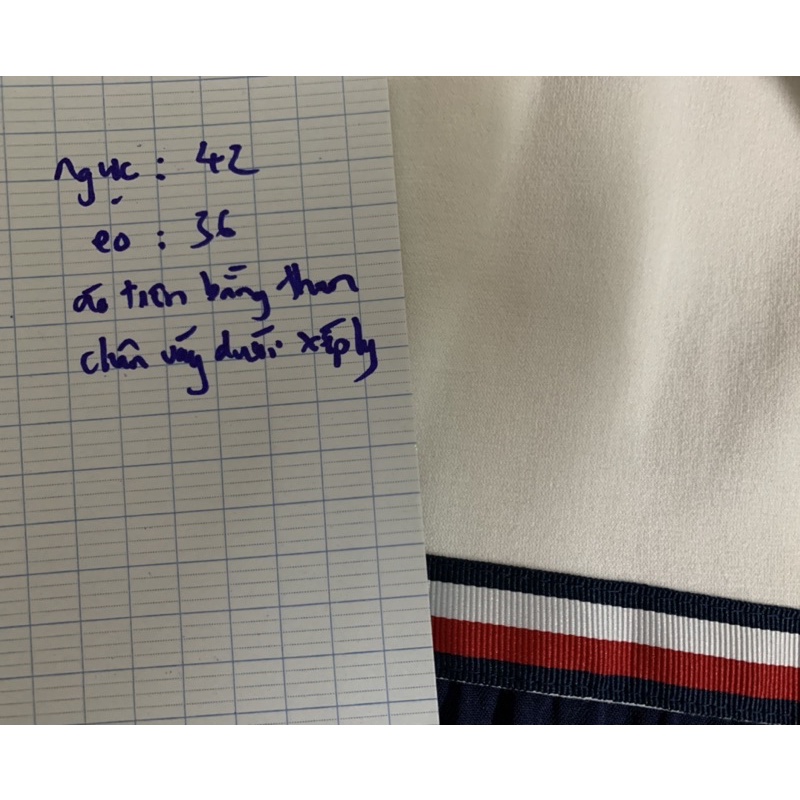 ngực : 42
eo : 36
áo trên bằng than
chân váy dưới xếp ly